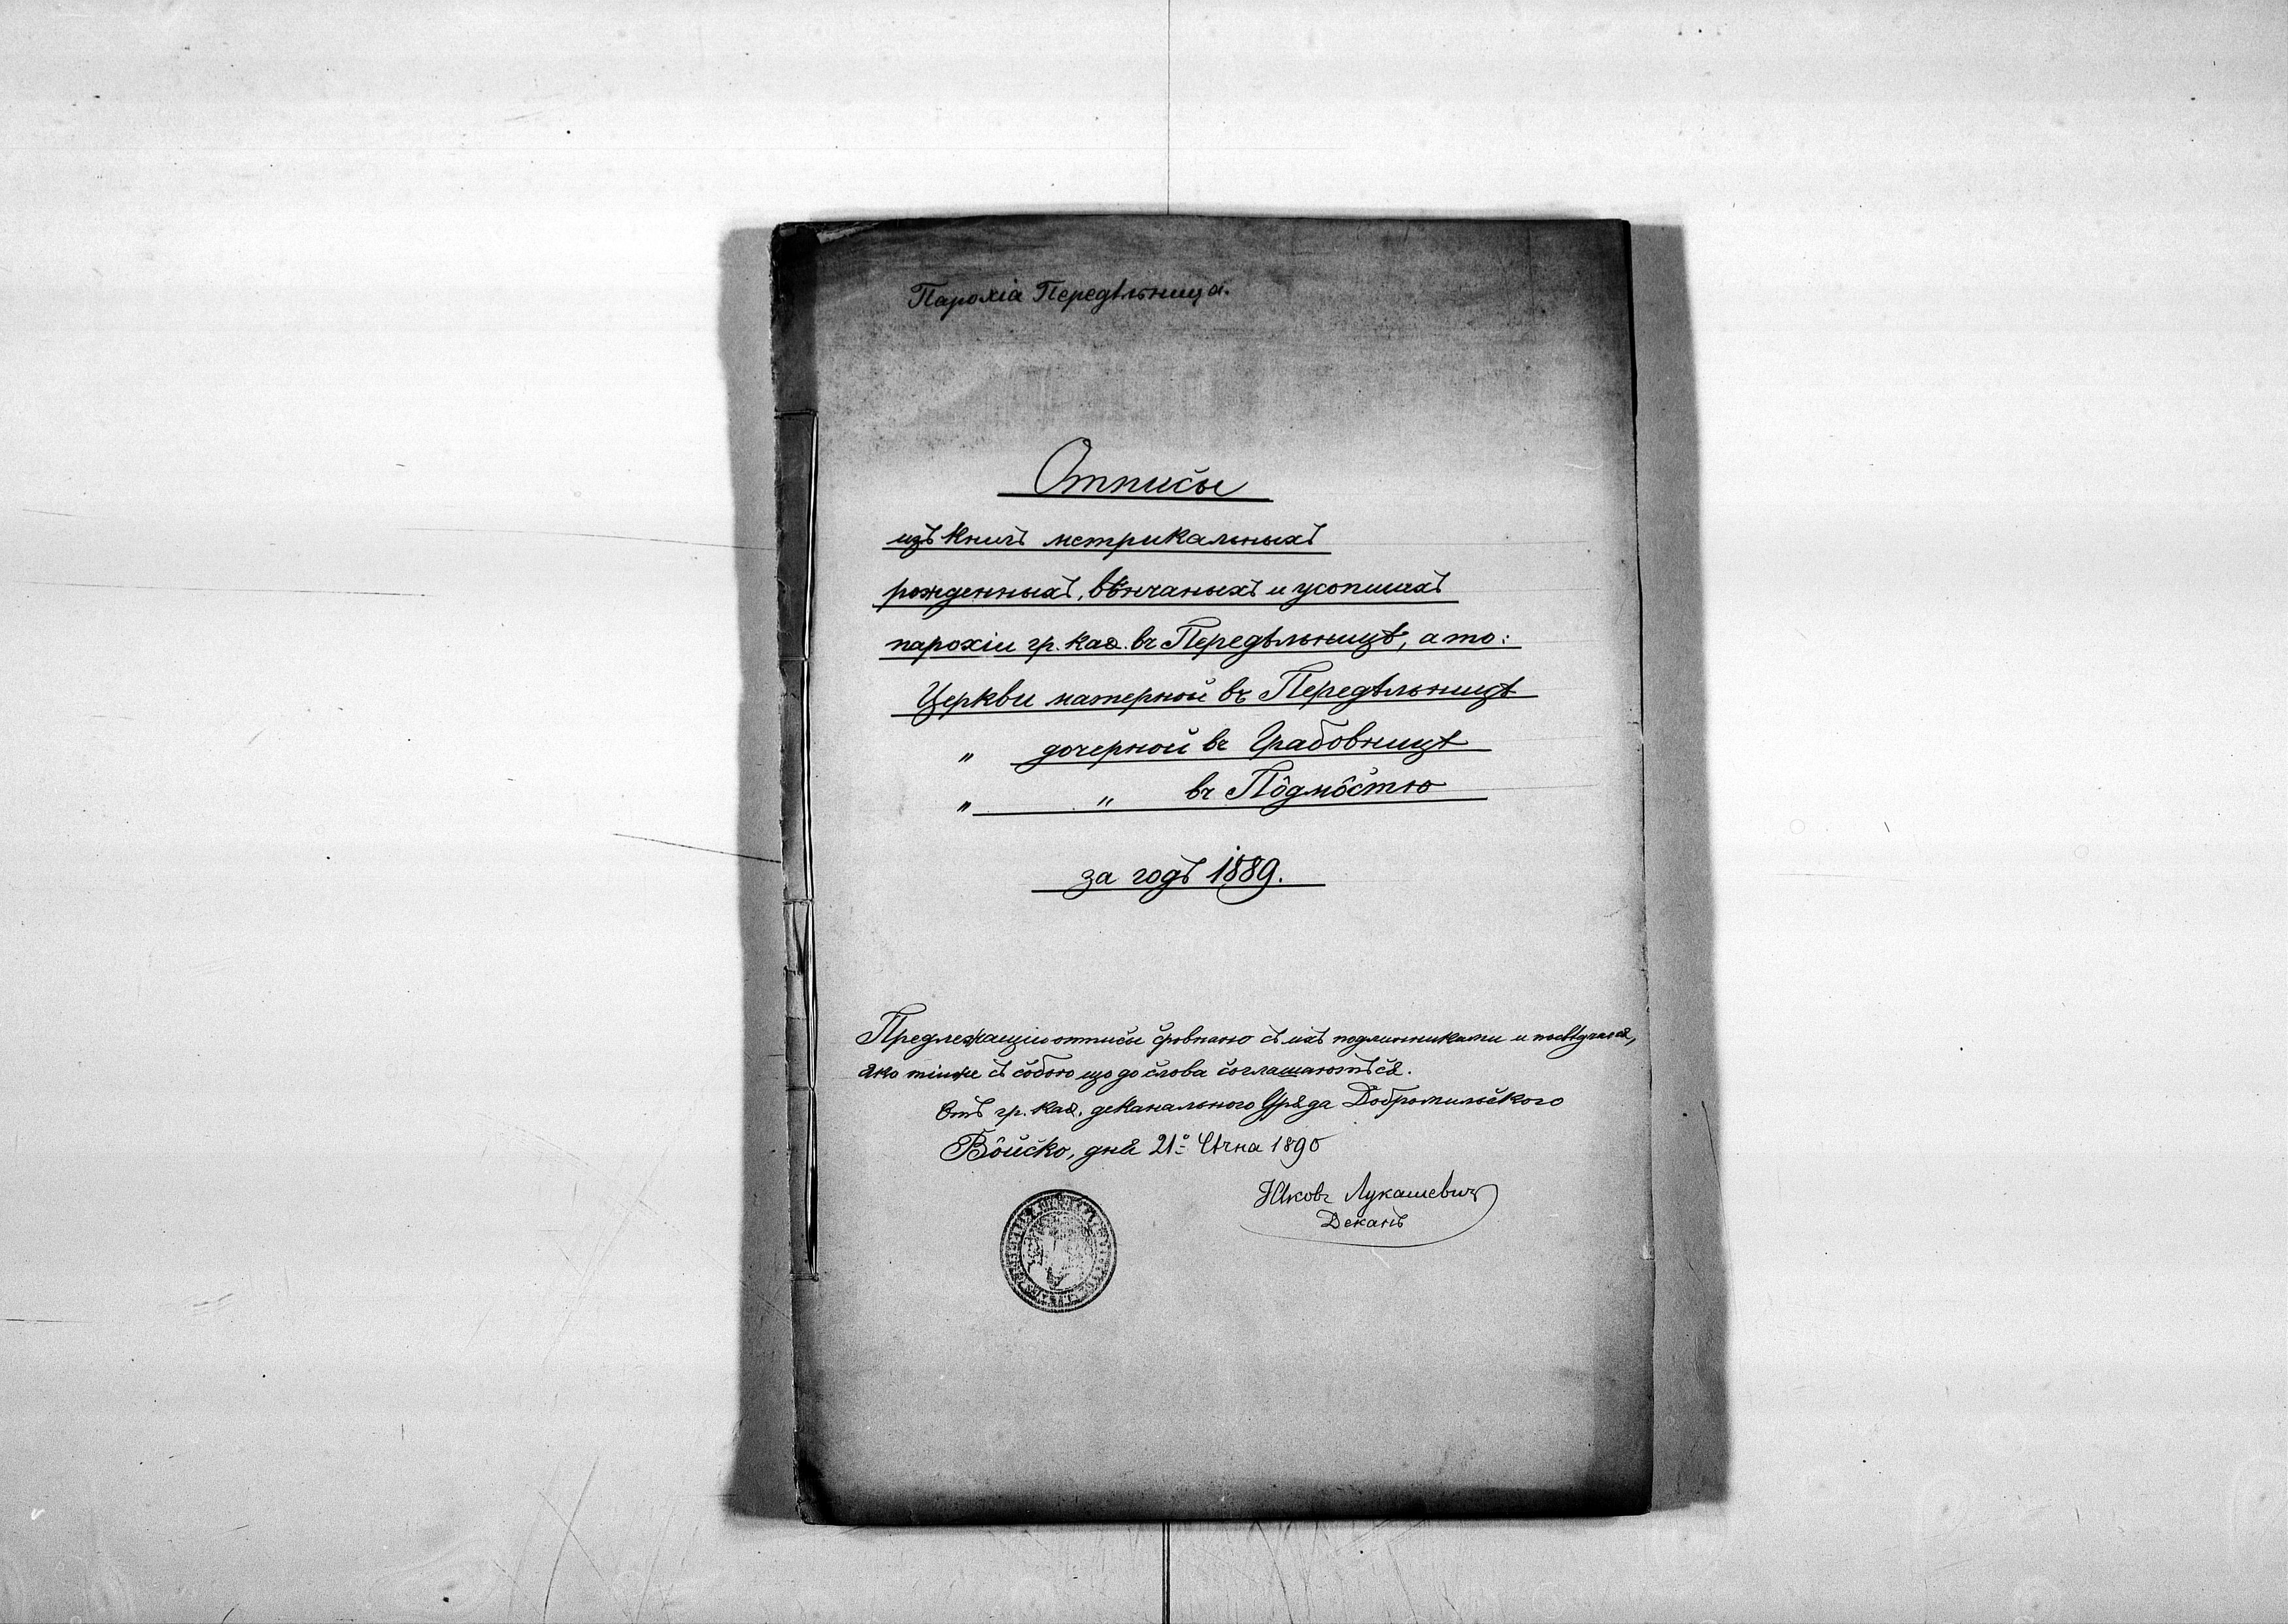 Парохіа Передѣльница.
Отписы
изъ книгъ метрикальныхъ
рожденныхъ, вѣнчаныхъ и усопшихъ
парохіи гр. каѳ. въ Передѣльницѣ, а то:
Церкви матерной въ Передѣльницѣ
" дочерной въ Грабовницѣ
" " въ Пôдмôстю
за годъ 1889.
Предлежащіи отписы сровнано съ ихъ подлинниками и посвѣдчаєся,
яко тіиже съ собою що до слова соглашаютъся.
Отъ гр. каѳ. деканального Уряда Добромильского
Вôйско, дня 21º Сѣчня 1890
Яковъ Лукашевичъ
Деканъ